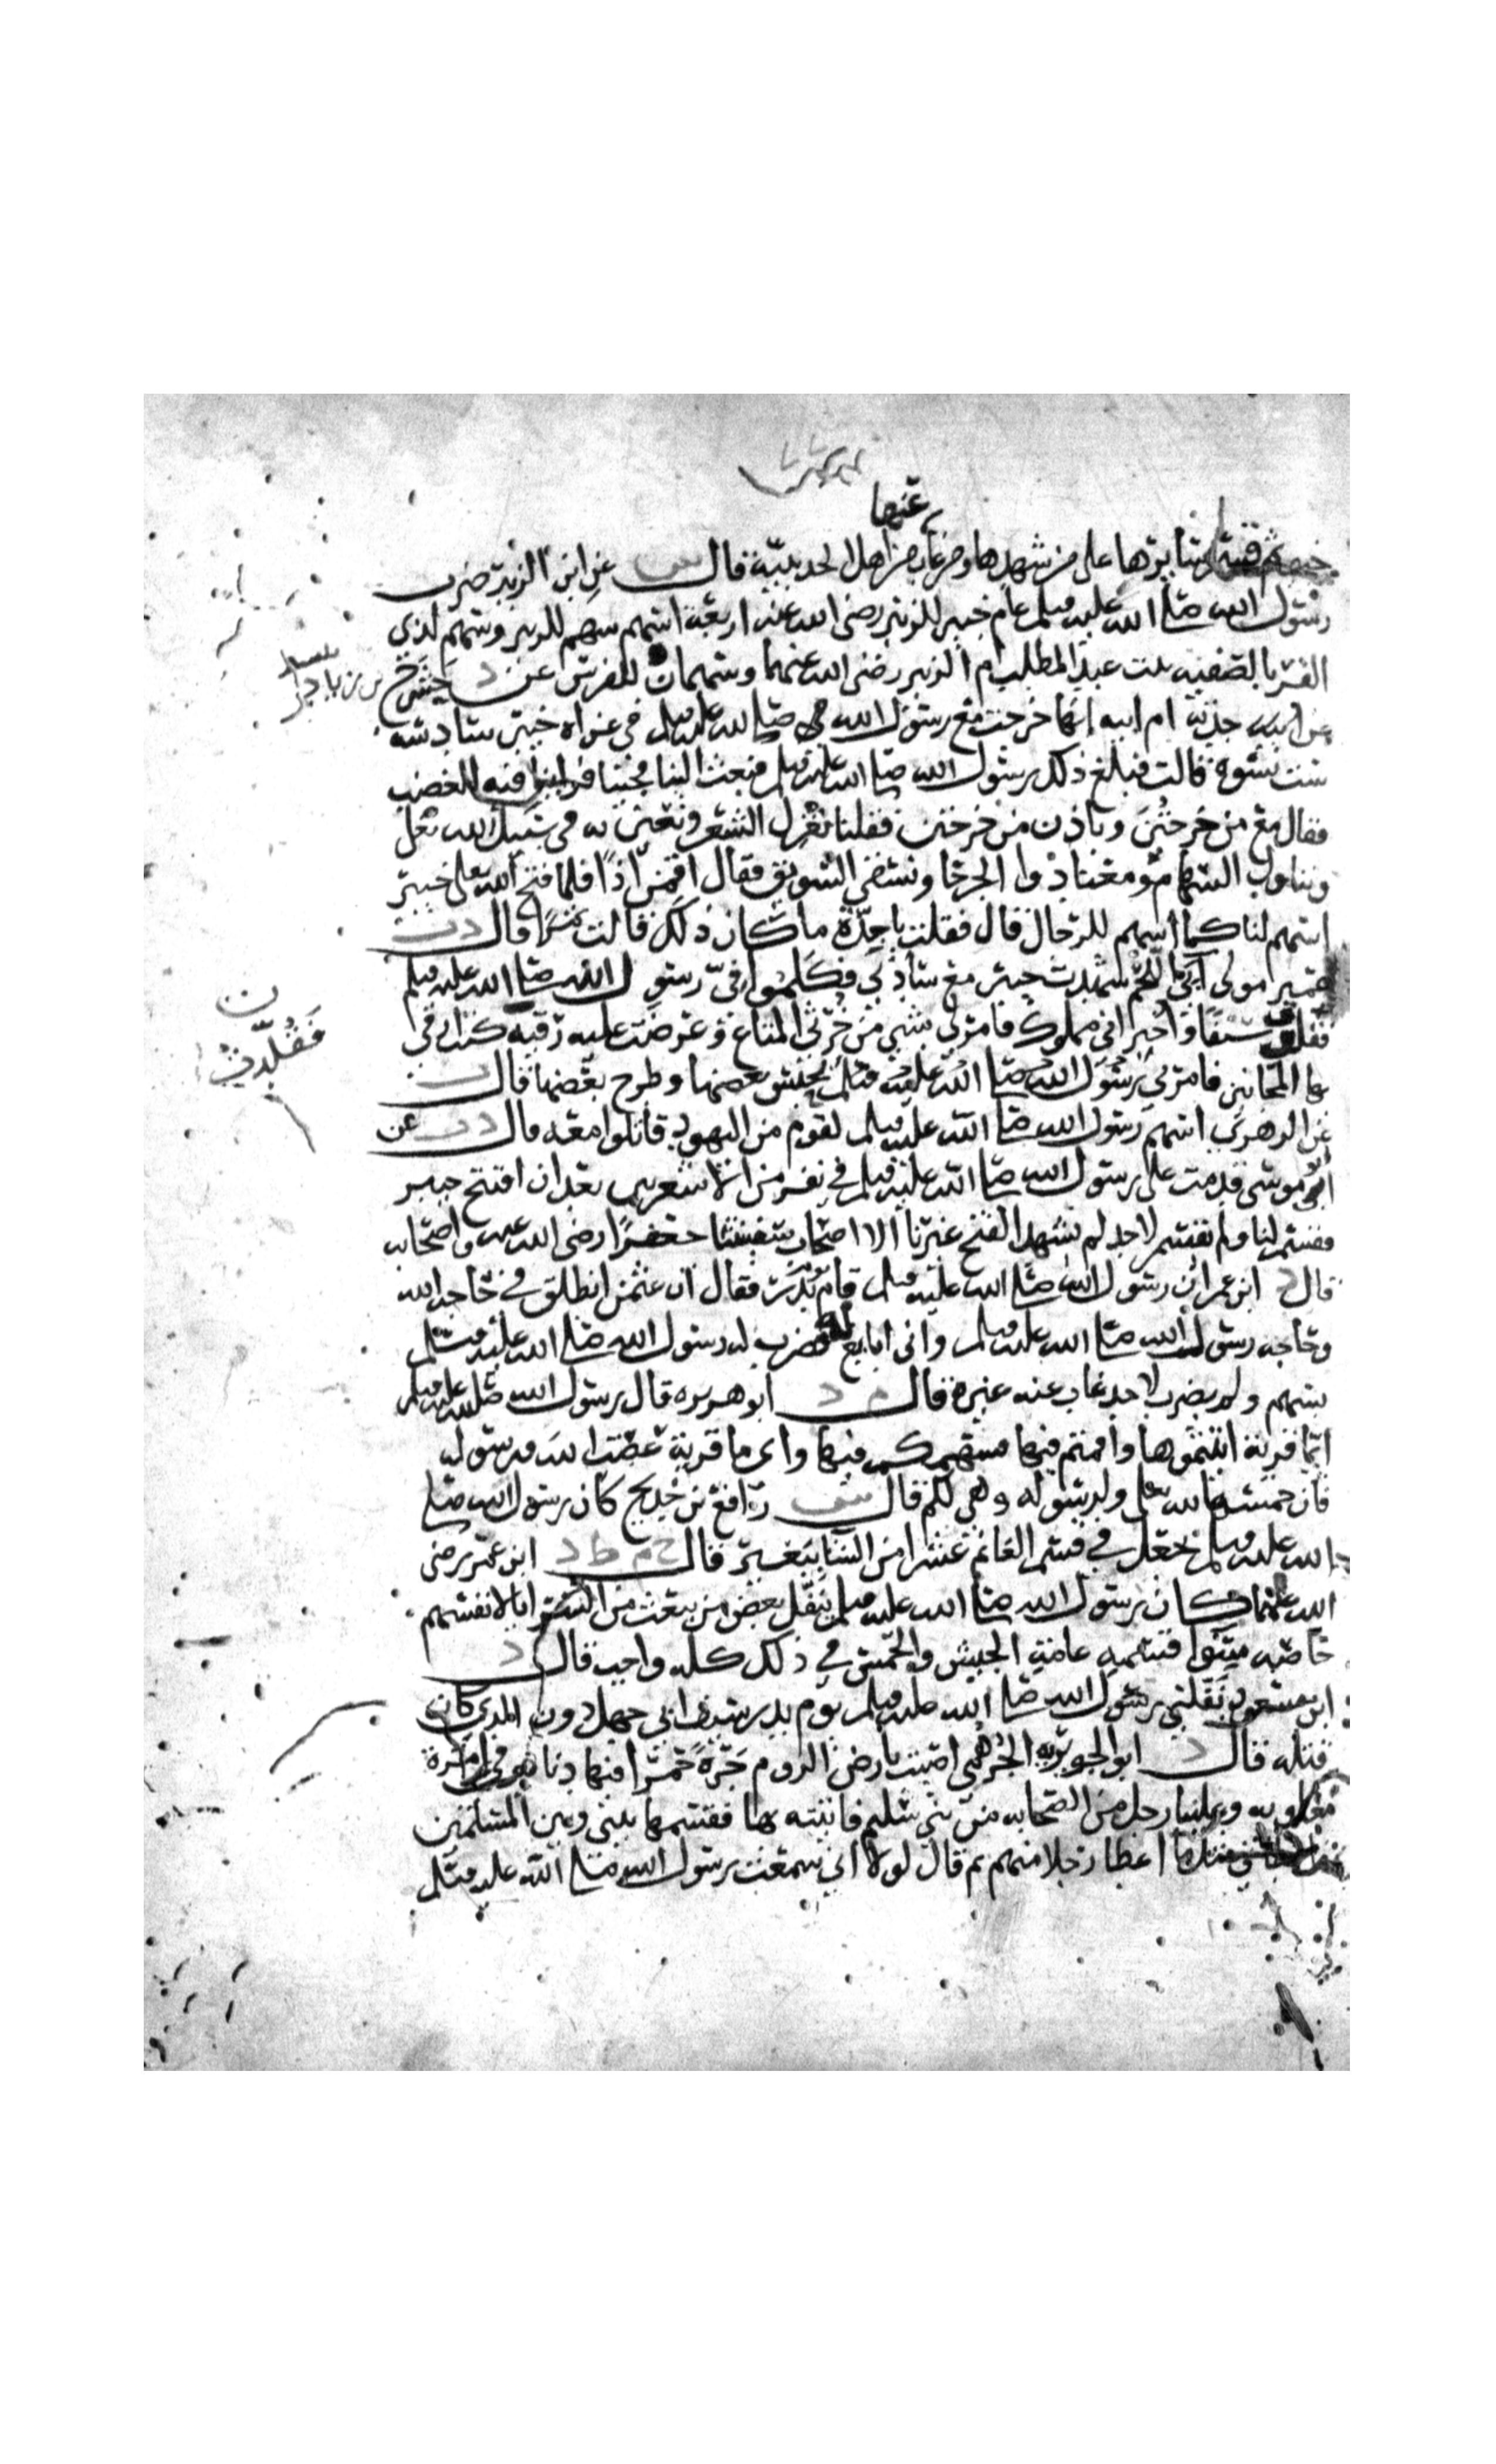 عنها
ثم قسم سائرها على من شهدها ومن غاب من اهل الحديبية قال س عن ابن الزبير ضرب
رسول الله صلى الله عليه وسلم عام خيبر للزبير رضى الله عنه اربعة اسهم سهم للزبير وسهم لذي
القربا لصفيه بنت عبد المطلب ام الزبير رضى الله عنهما وسهمان للفرس عن د حشرج بن زياد
عن ابيه جدته ام ابيه انها خرجت مع رسول الله صلى الله عليه وسلم في غزاه خيبر سادسه
ست نسوة قالت فبلغ ذلك رسول الله صلى الله عليه وسلم فبعث الينا فجئنا فراينا فيه الغضب
فقال مع من خرجتن وباذن من خرجتن فقلنا نغزل الشعر ونعين به في سبيل الله تعلى
ونناول السهام ومعنا دوا الجرحا ونسقي السويق فقال اقمن اذا فلما فتح الله على خيبر
اسهم لنا كما اسهم للرجال قال فقلت يا جدة ما كان ذلك قالت تمرا قال د ت
عمير مولى ابى اللحم شهدت خيبر مع سادتي فكلموا في رسول الله صلى الله عليه وسلم
فقلدت سيفا واخبر اني مملوك فامر لي بشي من خرثي المتاع وعرضت عليه رقيه كنت ارقي
بها المجانين فامرني رسول الله صلى الله عليه وسلم بحبس بعضها وطرح بعضها قال ت
عن الزهري اسهم رسول الله صلى الله عليه وسلم لقوم من اليهود قاتلوا معه قال د ت عن
ابي موسى قدمت على رسول الله صلى الله عليه وسلم في نفر من الاشعريين بعد ان افتتح خيبر
فقسم لنا ولم يقسم لاحد لم يشهد الفتح غيرنا الا اصحاب سفينتنا جعفرا رضى الله عنه واصحابه
قال د ابن عمر ان رسول الله صلى الله عليه وسلم قام يوم بدر فقال ان عثمن انطلق في حاجه الله
وحاجه رسول الله صلى الله عليه وسلم واني ابايع له فضرب له رسول الله صلى الله عليه وسلم
بسهم ولم يضرب لاحد غاب عنه غيره قال م د ابو هريره قال رسول الله صلى الله عليه وسلم
ايما قرية اتيتموها واقمتم فيها فسهمكم فيها واى ما قرية عصت الله ورسوله
فان خمسها لله تعلى ولرسوله وهي لكم قال س رافع بن خديج كان رسول الله صلى
الله عليه وسلم يجعل في قسم الغانم عشرا من الشا ببعير قال خ م ط د ابن عمر رضى
الله عنهما كان رسول الله صلى الله عليه وسلم ينفل بعض من يبعث من السرايا لانفسهم
خاصه سوا قسمه عامة الجيش والخمس في ذلك كله واجب قال د
ابن مسعود نفلني رسول الله صلى الله عليه وسلم يوم بدر سيف ابي جهل دون الذي كان
قتله قال د ابو الجويريه الجرمي اصبت بارض الروم جرة حمرا فيها دنانير في امرة
معاويه وعلينا رجل من الصحابه من بني سليم فاتيته بها فقسمها بيني وبين المسلمين
اعطا رجلا منهم ثم قال لولا اني سمعت رسول الله صلى الله عليه وسلم
ن
فقلدت